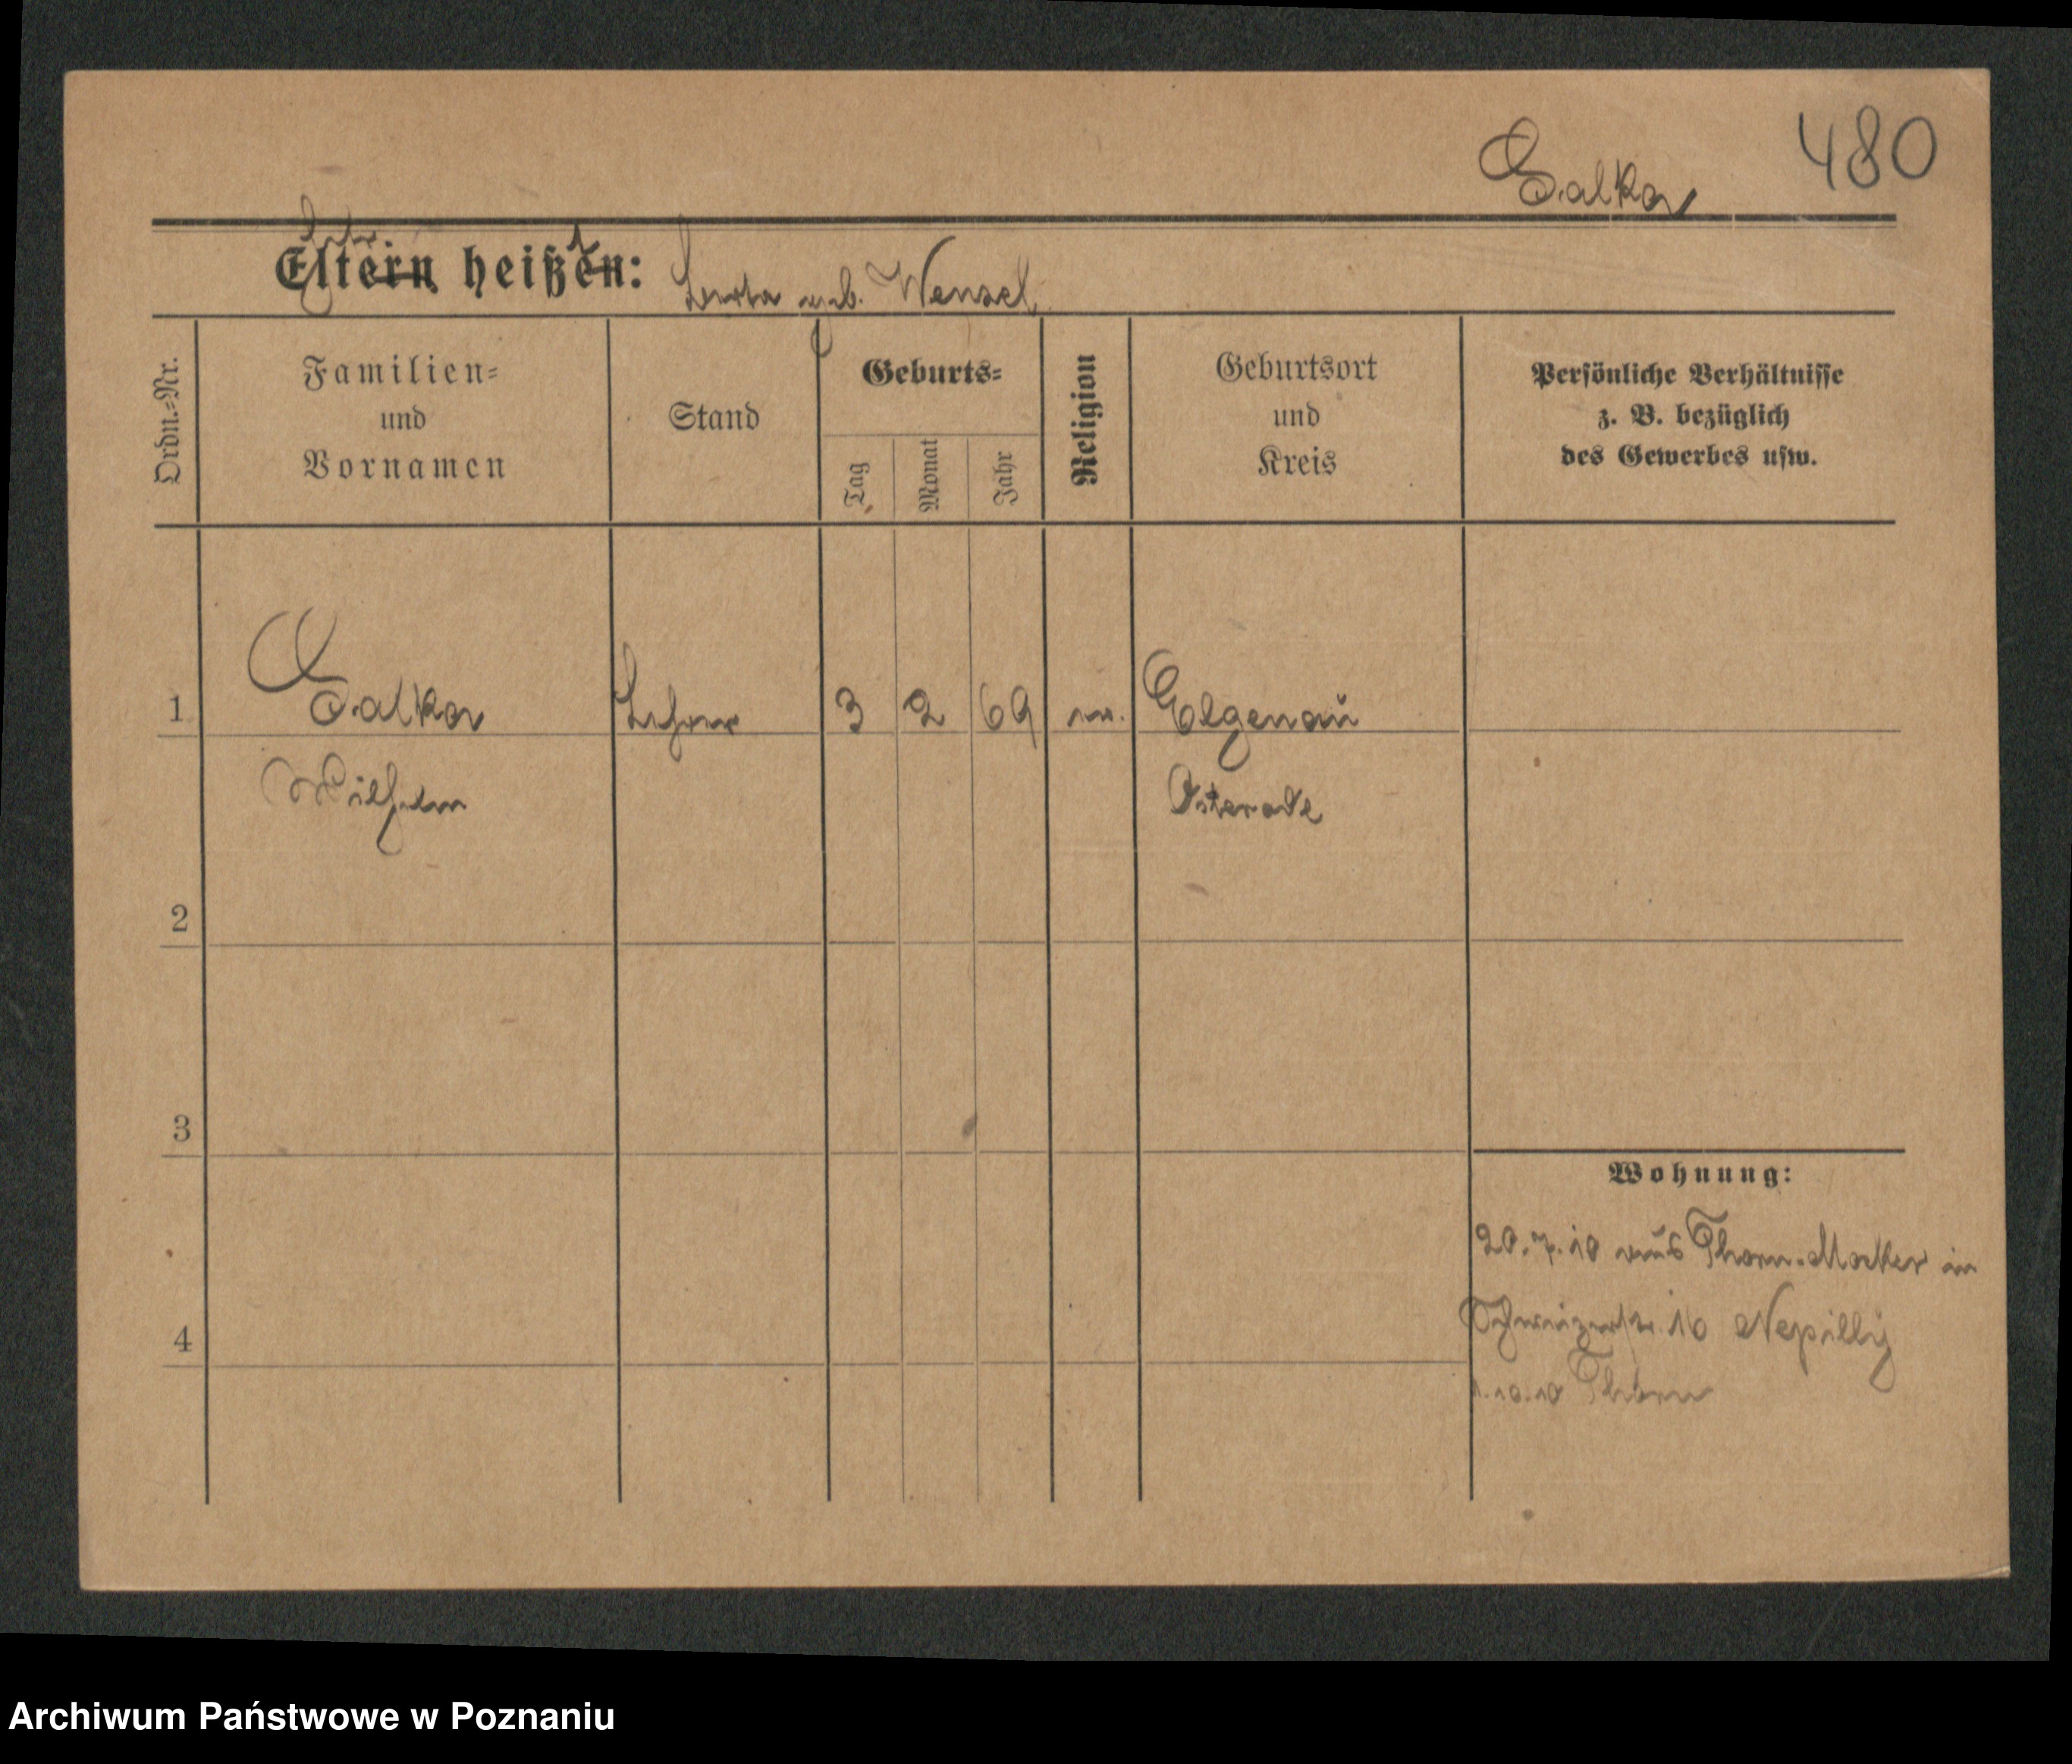 Salka 480
Eltern heißen: geb. Wenzel
Ordn.=Nr.
Familien=
und
Vornamen
Stand
Geburts=
Tag
Monat
Jahr
Religion
Geburtsort
und
Kreis
Persönliche Verhältnisse
z. B. bezüglich
des Gewerbes usw.
1 Salka Lehrer 3 2 69 Elgenau
Wilhelm Osterode
2
3
4
Wohnung:
20.7.10 aus Thorn-Mocker in
16
1.10.10 Thorn
Archiwum Państwowe w Poznaniu